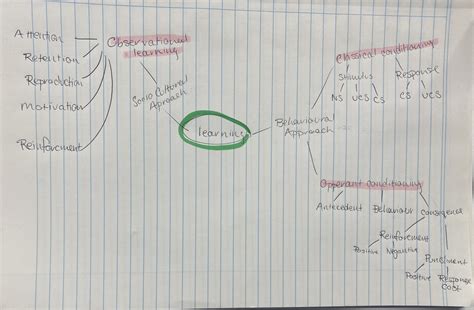 Attention
Retention
Reproduction
Motivation
Reinforcement
Observational
learning
Socio Cultural
Aproach
learning
Behavioural
Approach
Classical conditioning
Stimulus
Response
NS
UCS
CS
CS
UCS
Opperant conditioning
Antecedent
Behavior
Consequence
Reinforcement
Positive
Negative
Punishment
Positive
Response
Cost